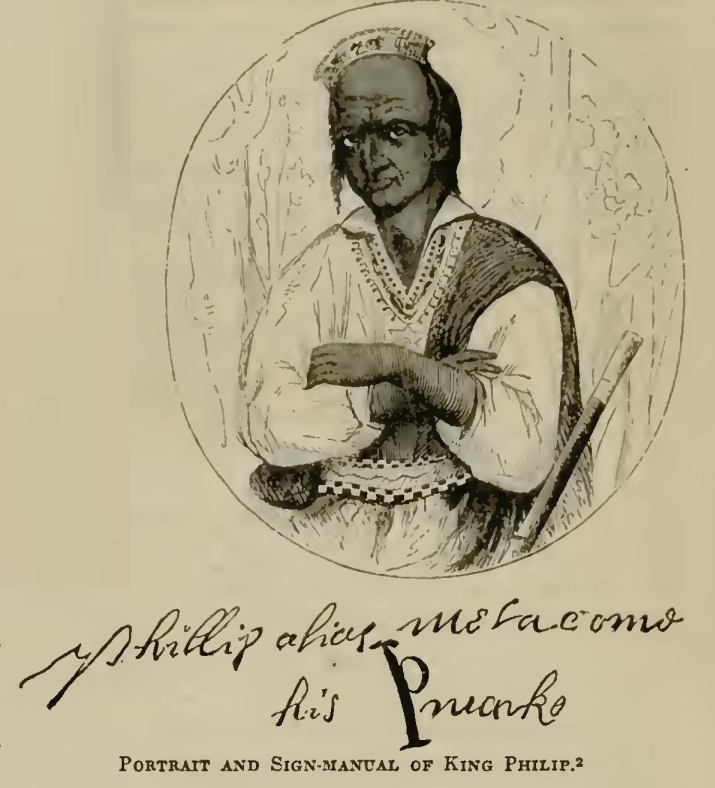 Phillip alias metacome
his P marke
PORTRAIT AND SIGN-MANUAL OF KING PHILIP.²